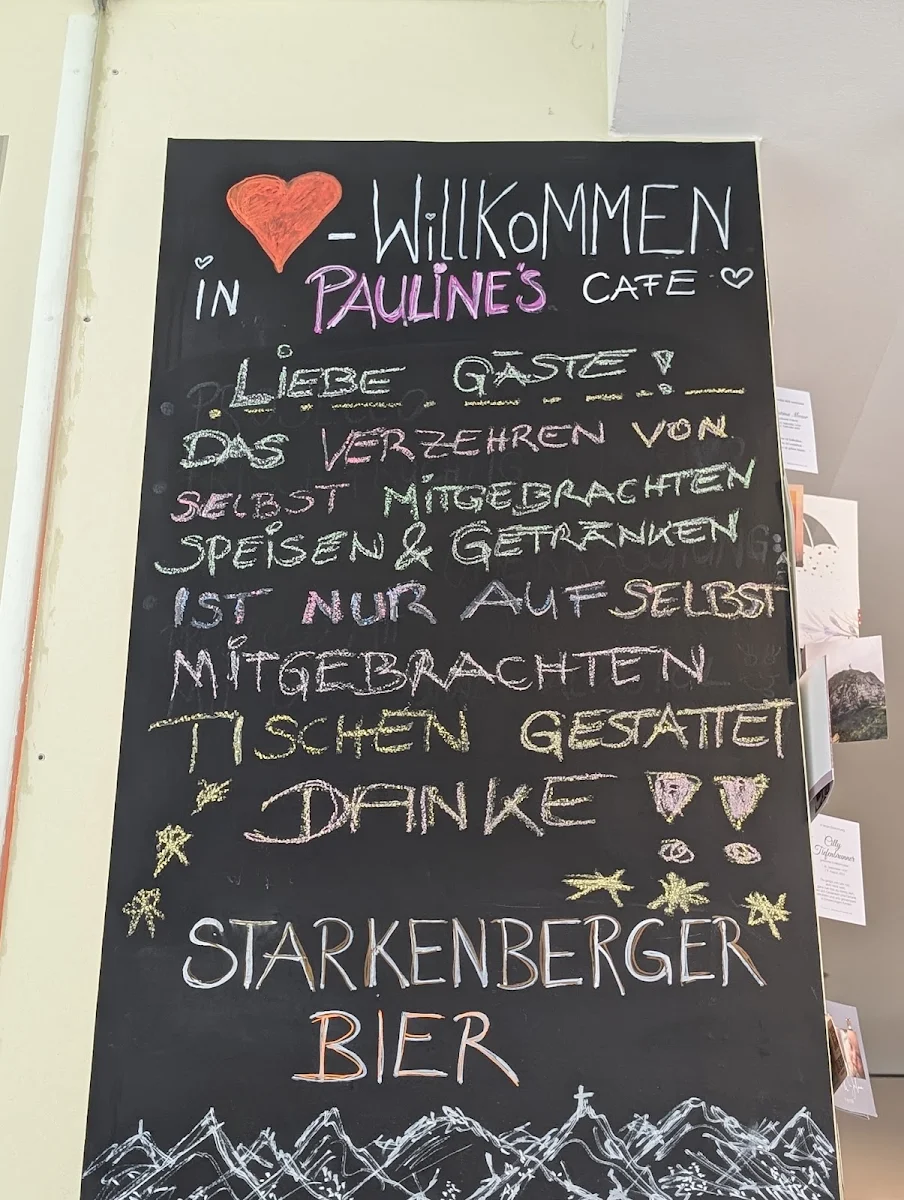 ❤-WillKoMMEN
IN PAULINE'S CAFE ♡
LIEBE GÄSTE!
DAS VERZEHREN VON
SELBST MITGEBRACHTEN
SPEISEN & GETRÄNKEN
IST NUR AUF SELBST
MITGEBRACHTEN
TISCHEN GESTATTET
DANKE !!
STARKENBERGER
BIER
Cilly
Tiefenbrunner